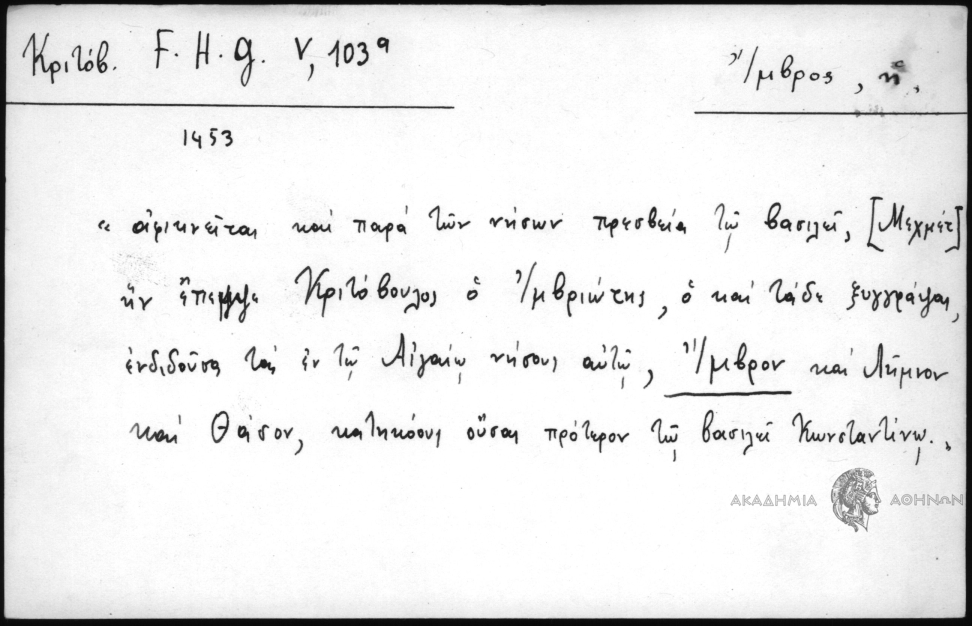 Κριτόβ. F. H. G. V, 103ª
Ἴμβρος, ἡ.
1453
« ἀφικνεῖται καὶ παρὰ τῶν νήσων πρεσβεία τῷ βασιλεῖ, [Μεχμέτ]
ἣν ἔπεμψε Κριτόβουλος ὁ Ἰμβριώτης, ὁ καὶ τάδε ξυγγράψας,
ἐνδιδοῦσα τὰς ἐν τῷ Αἰγαίῳ νήσους αὐτῷ, Ἴμβρον καὶ Λῆμνον
καὶ Θάσον, κατηκόους οὔσας πρότερον τῷ βασιλεῖ Κωνσταντίνῳ. »
ΑΚΑΔΗΜΙΑ ΑΘΗΝΩΝ